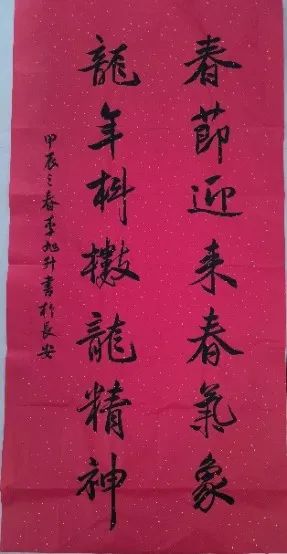 春節迎来春氣象
龍年抖擞龍精神
甲辰之春李旭升書於長安